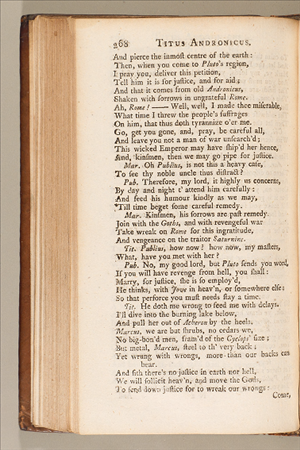 268 TITUS ANDRONICUS.
And pierce the inmost centre of the earth:
Then, when you come to Pluto's region,
I pray you, deliver this petition,
Tell him it is for justice, and for aid;
And that it comes from old Andronicus,
Shaken with sorrows in ungrateful Rome.
Ah, Rome!—— Well, well, I made thee miserable,
What time I threw the people's suffrages
On him, that thus doth tyrannize o'er me.
Go, get you gone, and, pray, be careful all,
And leave you not a man of war unsearch'd;
This wicked Emperor may have ship'd her hence,
And, kinsmen, then we may go pipe for justice.
Mar. Oh Publius, is not this a heavy case,
To see thy noble uncle thus distract?
Pub. Therefore, my lord, it highly us concerns,
By day and night t' attend him carefully:
And feed his humour kindly as we may,
'Till time beget some careful remedy.
Mar. Kinsmen, his sorrows are past remedy.
Join with the Goths, and with revengeful war
Take wreak on Rome for this ingratitude,
And vengeance on the traitor Saturnine.
Tit. Publius, how now? how now, my masters,
What, have you met with her?
Pub. No, my good lord, but Pluto sends you word,
If you will have revenge from hell, you shall:
Marry, for justice, she is so employ'd,
He thinks, with Jove in heav'n, or somewhere else;
So that perforce you must needs stay a time.
Tit. He doth me wrong to feed me with delays.
I'll dive into the burning lake below,
And pull her out of Acheron by the heels.
Marcus, we are but shrubs, no cedars we,
No big-bon'd men, fram'd of the Cyclops' size;
But metal, Marcus, steel to th' very back;
Yet wrung with wrongs, more than our backs can
bear.
And sith there's no justice in earth nor hell,
We will sollicit heav'n, and move the Gods,
To send down justice for to wreak our wrongs:
Come,